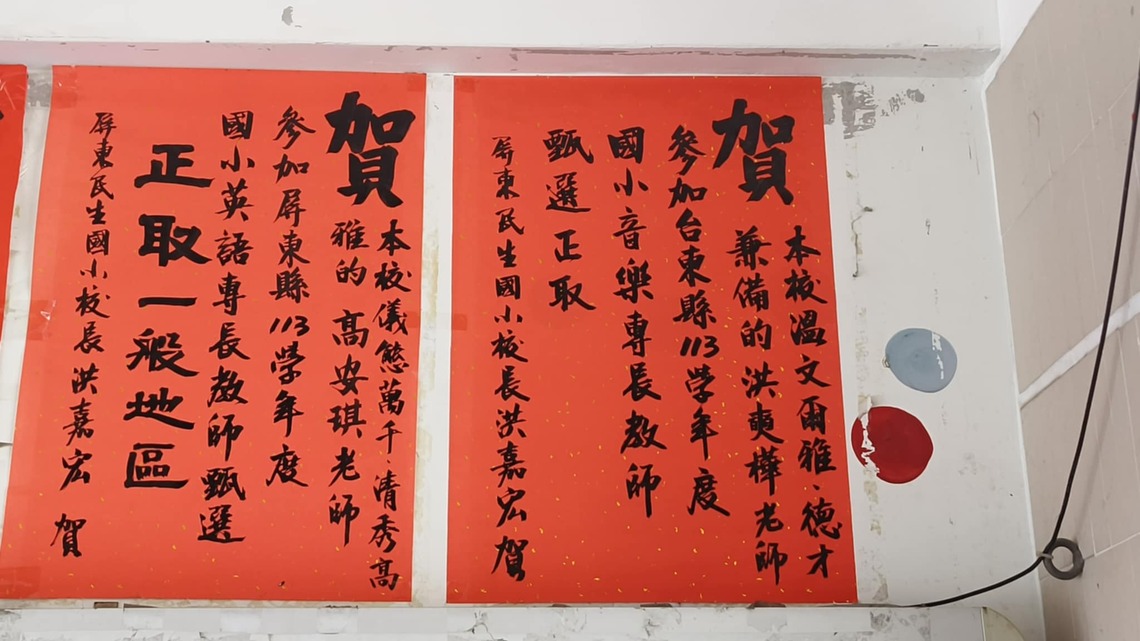 賀
本校溫文爾雅.德才
兼備的 洪奭樺老師
參加台東縣113學年度
國小音樂專長教師
甄選正取
屏東民生國小校長洪嘉宏 賀
賀
本校儀態萬千.清秀高
雅的 高安琪老師
參加屏東縣113學年度
國小英語專長教師甄選
正取一般地區
屏東民生國小校長 洪嘉宏 賀